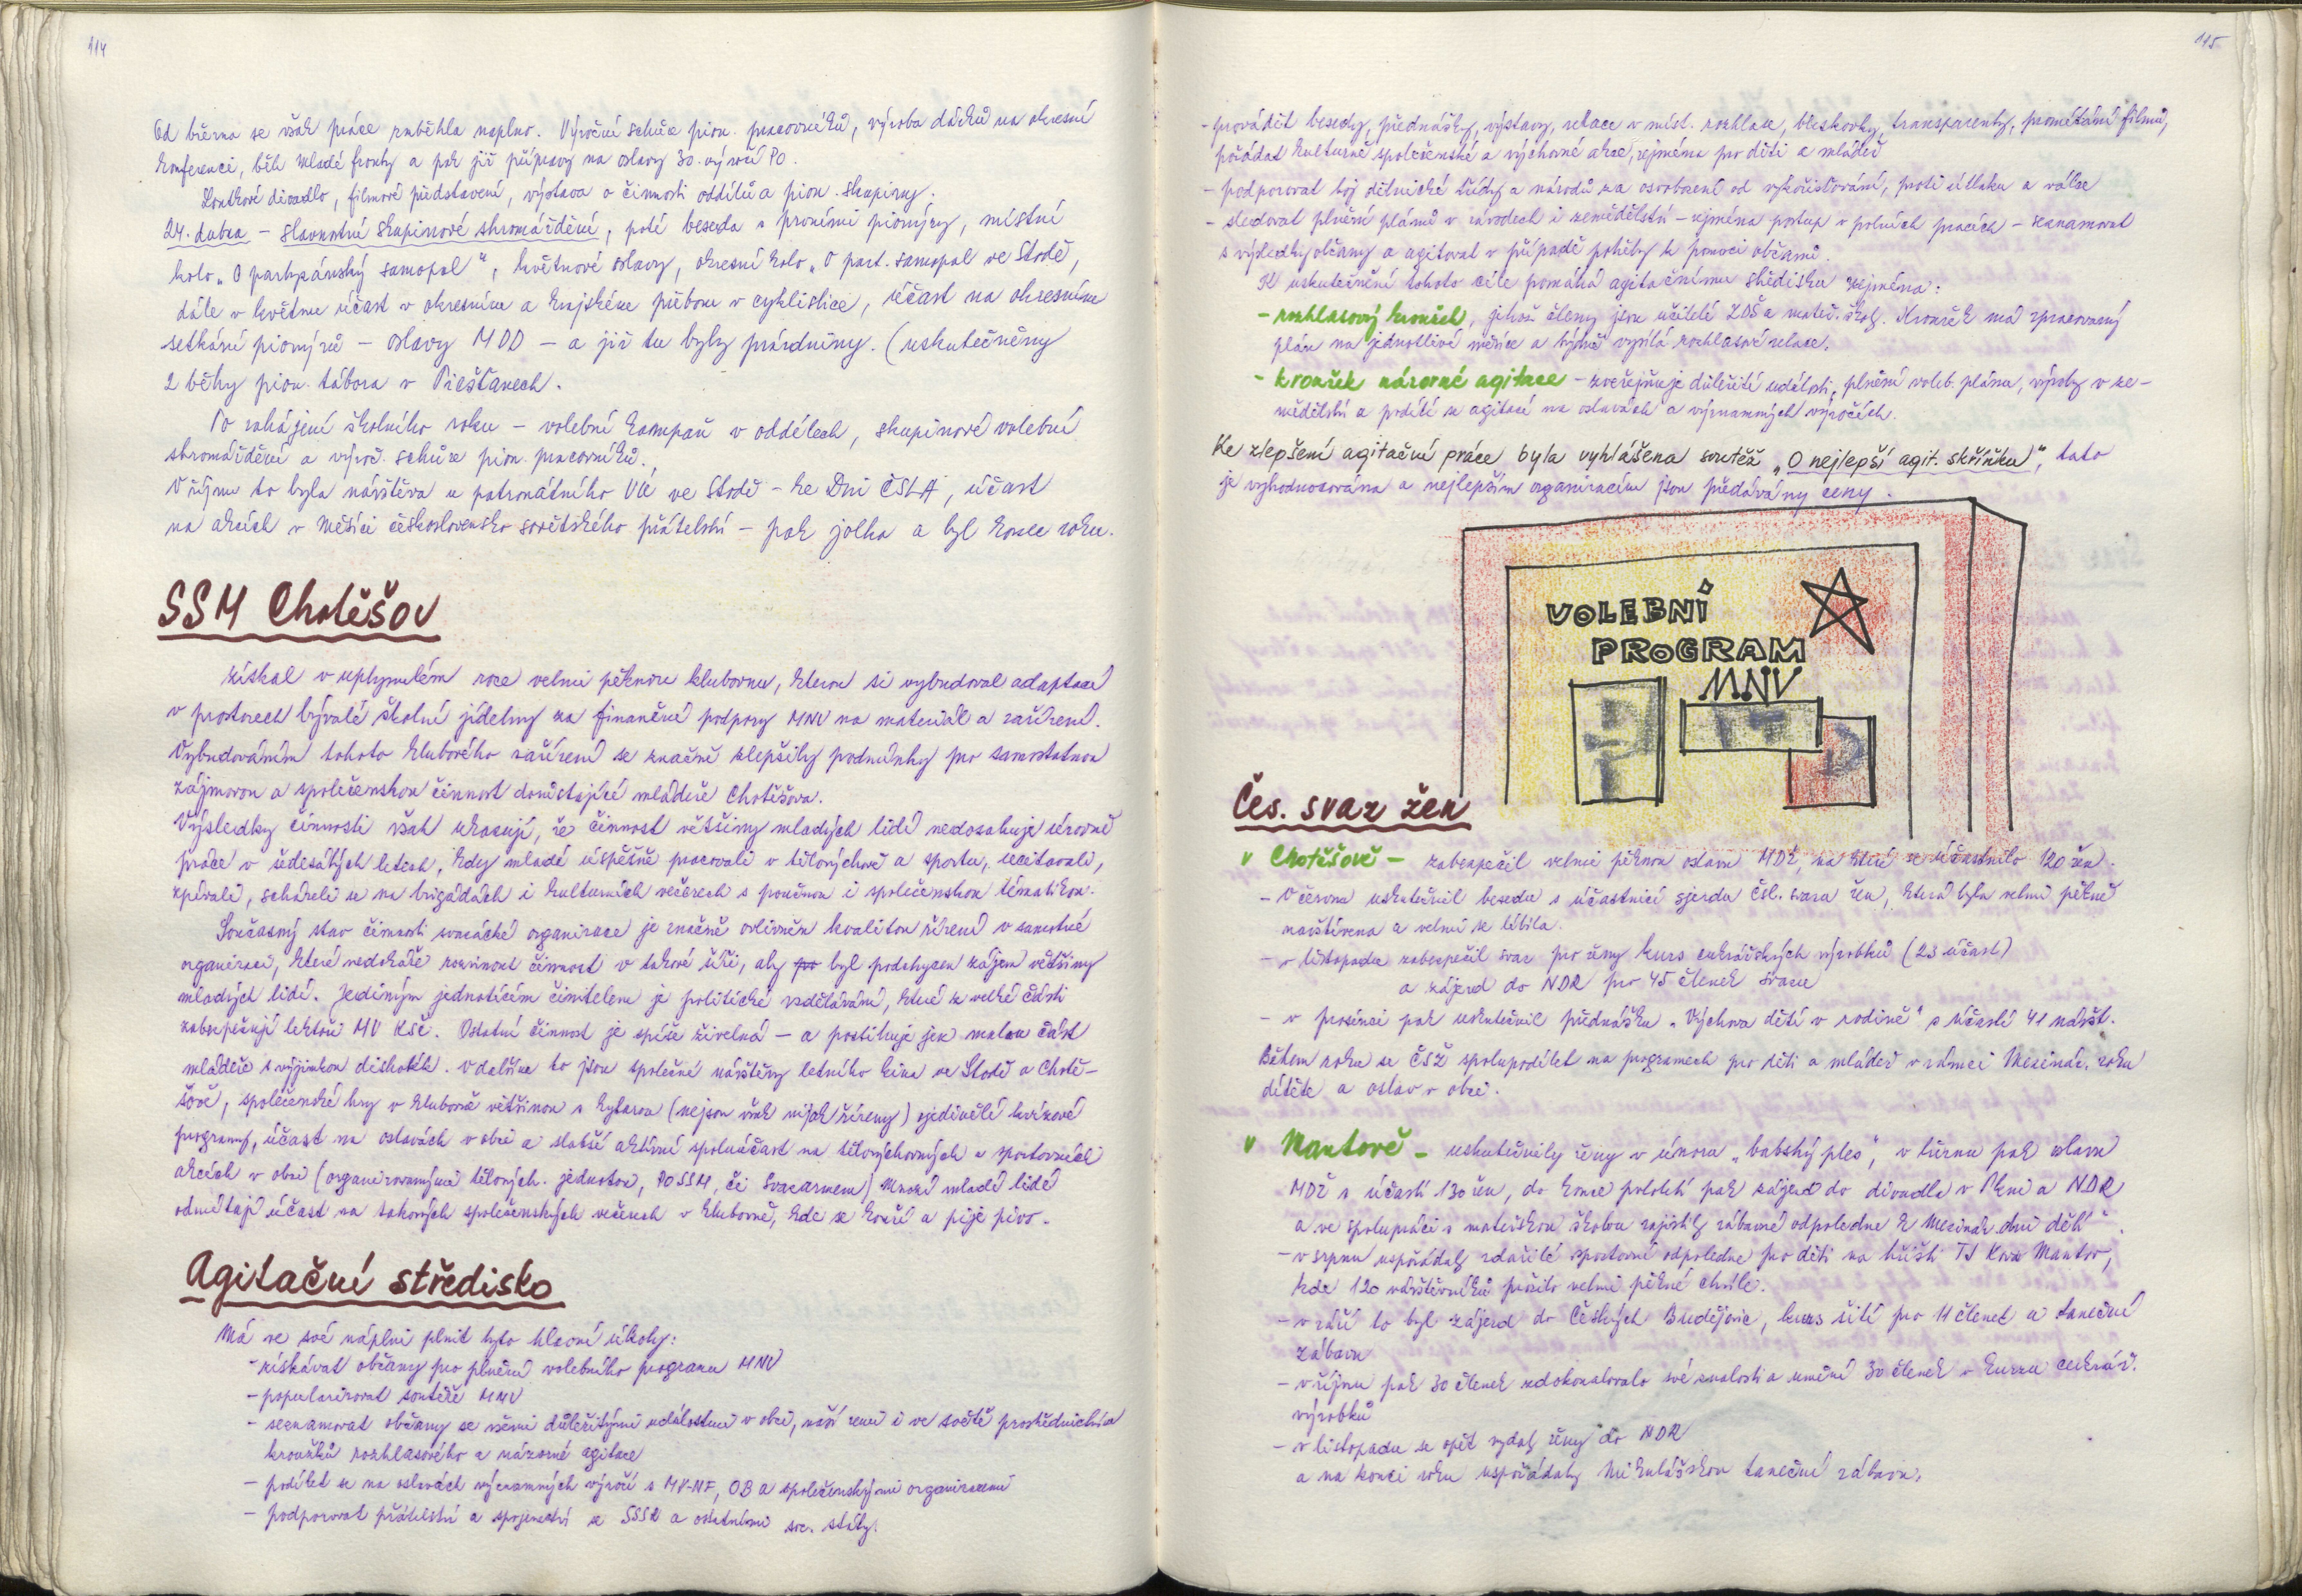 114
Od března se však práce rozběhla naplno. Výroční schůze pion. pracovníků, výroba dárků na okresní
konferenci, běh Mladé fronty a pak již přípravy na oslavy 30. výročí PO.
Loutkové divadlo, filmové představení, výstava o činnosti oddílů a pion. skupiny.
24. dubna – slavnostní skupinové shromáždění, poté beseda s prvními pionýry, místní
kolo „O partyzánský samopal", květnové oslavy, okresní kolo „O part. samopal ve Stodě,
dále v květnu účast v okresním a krajském přeboru v cyklistice, účast na okresním
setkání pionýrů – oslavy MDD – a již tu byly prázdniny. (uskutečněny
2 běhy pion. tábora v Piešťanech.
Po zahájení školního roku – volební kampaň v oddílech, skupinové volební
shromáždění a výroč. schůze pion. pracovníků.
V říjnu to byla návštěva u patronátního VÚ ve Stodě – ke Dni ČSLA, účast
na akcích v Měsíci československo sovětského přátelství – pak jolka a byl konec roku.
SSM Chotěšov
získal v uplynulém roce velmi pěknou klubovnu, kterou si vybudoval adaptací
v prostorech bývalé školní jídelny za finanční podpory MNV na materiál a zařízení.
Vybudováním tohoto klubového zařízení se značně zlepšily podmínky pro samostatnou
zájmovou a společenskou činnost dorůstající mládeže Chotěšova.
Výsledky činnosti však ukazují, že činnost většiny mladých lidí nedosahuje úrovně
práce v šedesátých letech, kdy mladí úspěšně pracovali v tělovýchově a sportu, recitovali,
zpívali, scházeli se na brigádách i kulturních večerech s poučnou i společenskou tématikou.
Současný stav činnosti svazácké organizace je značně ovlivněn kvalitou řízení v samotné
organizaci, které nedokáže rozvinout činnost v takové šíři, aby byl podchycen zájem většiny
mladých lidí. Jediným jednotícím činitelem je politické vzdělávání, které z velké části
zabezpečují lektoři MV KSČ. Ostatní činnost je spíše živelná – a postihuje jen malou část
mládeže s výjimkou diskoték. V dalším to jsou společné návštěvy letního kina ve Stodě a Chotě-
šově, společenské hry v klubovně většinou s kytarou (nejsou však nijak řízeny) ojedinělé kvízové
programy, účast na oslavách v obci a slabší aktivní spoluúčast na tělovýchovných a sportovních
akcích v obci (organizovanými tělových. jednotou, PO SSM, či Svazarmem) Mnozí mladí lidé
odmítají účast na takových společenských večerech v klubovně, kde se kouří a pije pivo.
Agitační středisko
Má ve své náplni plnit tyto hlavní úkoly:
- získávat občany pro plnění volebního programu MNV
- popularizovat soutěže MNV
- seznamovat občany se všemi důležitými událostmi v obci, naší zemi i ve světě prostřednictvím
kroužků rozhlasového a názorné agitace
- podílet se na oslavách významných výročí s MV-NF, OB a společenskými organizacemi
- podporovat přátelství a spojenectví se SSSR a ostatními soc. státy.
115
- provádět besedy, přednášky, výstavy, relace v míst. rozhlase, bleskovky, transparenty, promítání filmů,
pořádat kulturně společenské a výchovné akce, zejména pro děti a mládež
- podporovat boj dělnické třídy a národů za osvobození od vykořisťování, proti útlaku a válce
- sledovat plnění plánů v závodech i zemědělství – zejména postup v polních pracích – seznamovat
s výsledky občany a agitovat v případě potřeby k pomoci občanů.
K uskutečnění tohoto cíle pomáhá agitačnímu středisku zejména:
- rozhlasový kroužek, jehož členy jsou učitelé ZDŠ a mateř. školy. Kroužek má zpracovaný
plán na jednotlivé měsíce a týdně vysílá rozhlasové relace.
- kroužek názorné agitace – zveřejňuje důležité události, plnění voleb. plánu, výroby v ze-
mědělství a podílí se agitací na oslavách a významných výročích.
Ke zlepšení agitační práce byla vyhlášena soutěž „O nejlepší agit. skříňku", tato
je vyhodnocována a nejlepším organizacím jsou předávány ceny.
VOLEBNÍ
PROGRAM
MNV
Čes. svaz žen
v Chotěšově – zabezpečil velmi pěknou oslavu MDŽ, na které se účastnilo 120 žen.
- V červnu uskutečnil besedu s účastnicí sjezdu Čsl. svazu žen, která byla velmi pěkně
navštívena a velmi se líbila.
- v listopadu zabezpečil svaz pro ženy kurs cukrářských výrobků (23 účast.)
a zájezd do NDR pro 45 členek svazu
- v prosinci pak uskutečnil přednášku „Výchova dětí v rodině" s účastí 41 návšt.
Během roku se ČSŽ spolupodílel na programech pro děti a mládež v rámci Mezinár. roku
dítěte a oslav v obci.
v Mantově – uskutečnily ženy v únoru „babský ples", v březnu pak oslavu
MDŽ s účastí 130 žen, do konce pololetí pak zájezd do divadla v Plzni a NDR
a ve spolupráci s mateřskou školou zajistily zábavné odpoledne k Mezinár. dni dětí.
- v srpnu uspořádaly zdařilé sportovní odpoledne pro děti na hřišti TJ Kovo Mantov,
kde 120 návštěvníků prožilo velmi pěkné chvíle.
- v září to byl zájezd do Českých Budějovic, kurs šití pro 11 členek a taneční
zábavu
- v říjnu pak 30 členek zdokonalovalo své znalosti a umění 30 členek v kurzu cukrář.
výrobků
- v listopadu se opět vydaly ženy do NDR
a na konci roku uspořádaly Mikulášskou taneční zábavu.